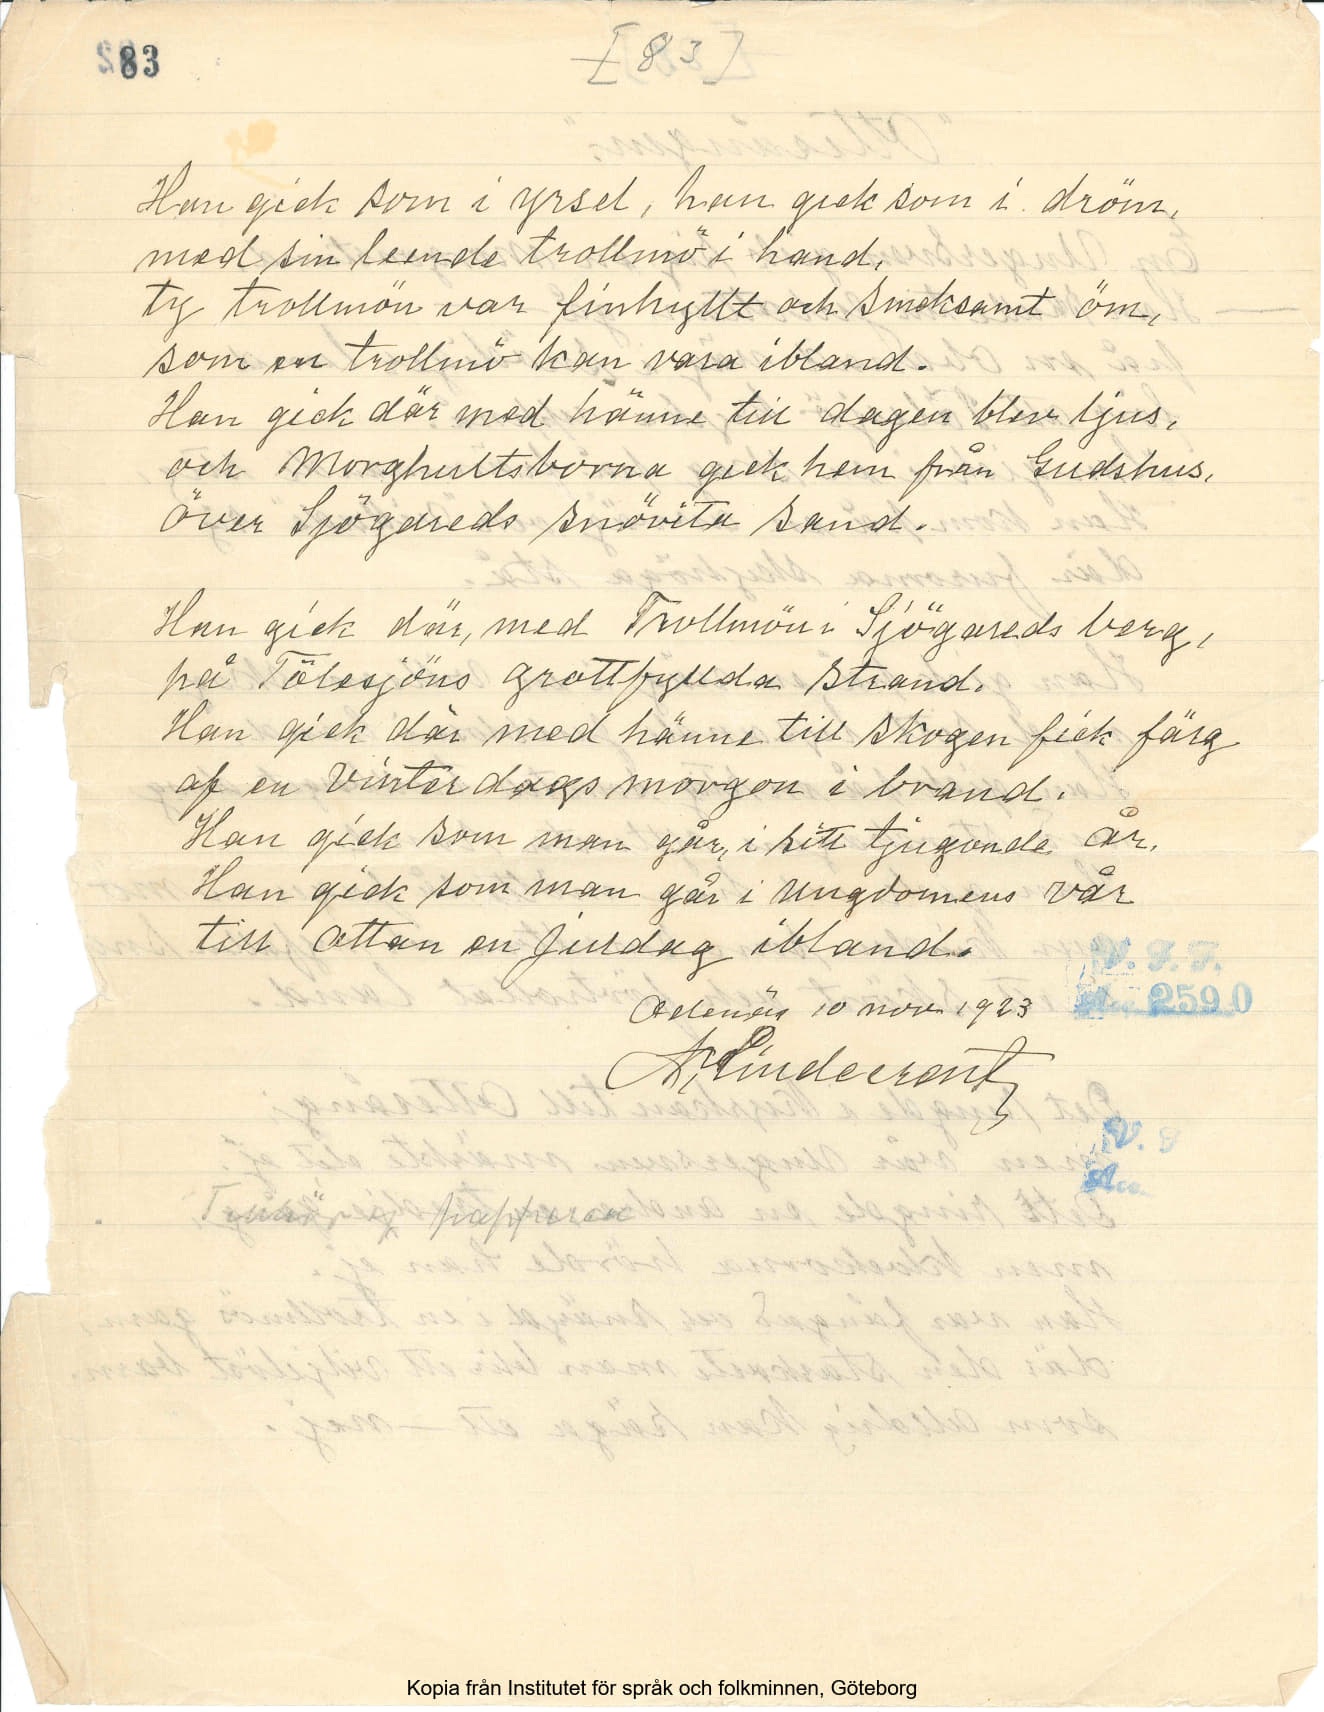 83
[83]
Han gick som i yrsel, han gick som i dröm,
med sin leende trollmö i hand,
ty trollmön var finhyllt och smeksamt öm,
som en trollmö kan vara ibland.
Han gick där med hänne till dagen blev ljus,
och Morghultsborna gick hem från Gudshus,
över Sjögareds snövita sand.
Han gick där, med Trollmön i Sjögareds berg,
på Tölesjöns grottfyllda strand.
Han gick där med hänne till skogen fick färg
af en vinterdags morgon i brand.
Han gick som man går, i sitt tjugonde år,
Han gick som man går i ungdomens vår
till ottan en juldag ibland.
V. F. F.
2590
Odenäs 10 nov 1923
Kopia från Institutet för språk och folkminnen, Göteborg